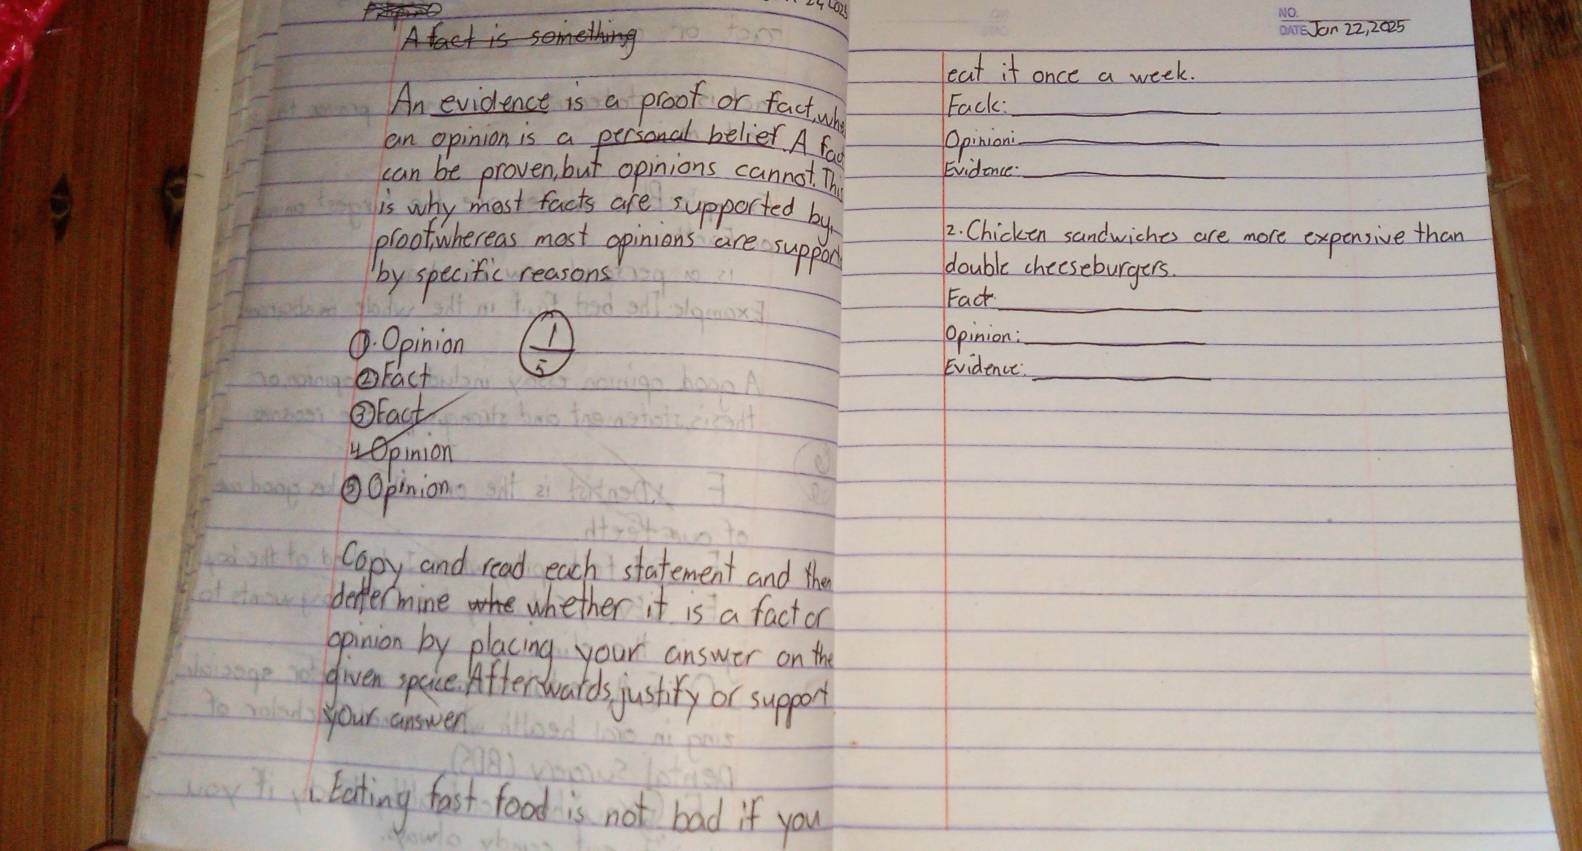 A fact is something
An evidence is a proof or fact, 
an opinion is a personal belief. A
can be proven, but opinions cannot.
is why most facts are supported by
proof, whereas most opinions are support
by specific reasons
1. Opinion
2 Fact
3 Fact
4 Opinion
5 Opinion
1
5
Copy and read each statement and then
determine whe whether it is a fact or
opinion by placing your answer on the
given space. Afterwards, justify or support
your answer.
1. Eating fast food is not bad if you
NO.
DATE Jan 22, 2025
eat it once a week.
Fack:
Opinion:
Evidence:
2. Chicken sandwiches are more expensive than
double cheeseburgers.
Fact
Opinion:
Evidence: